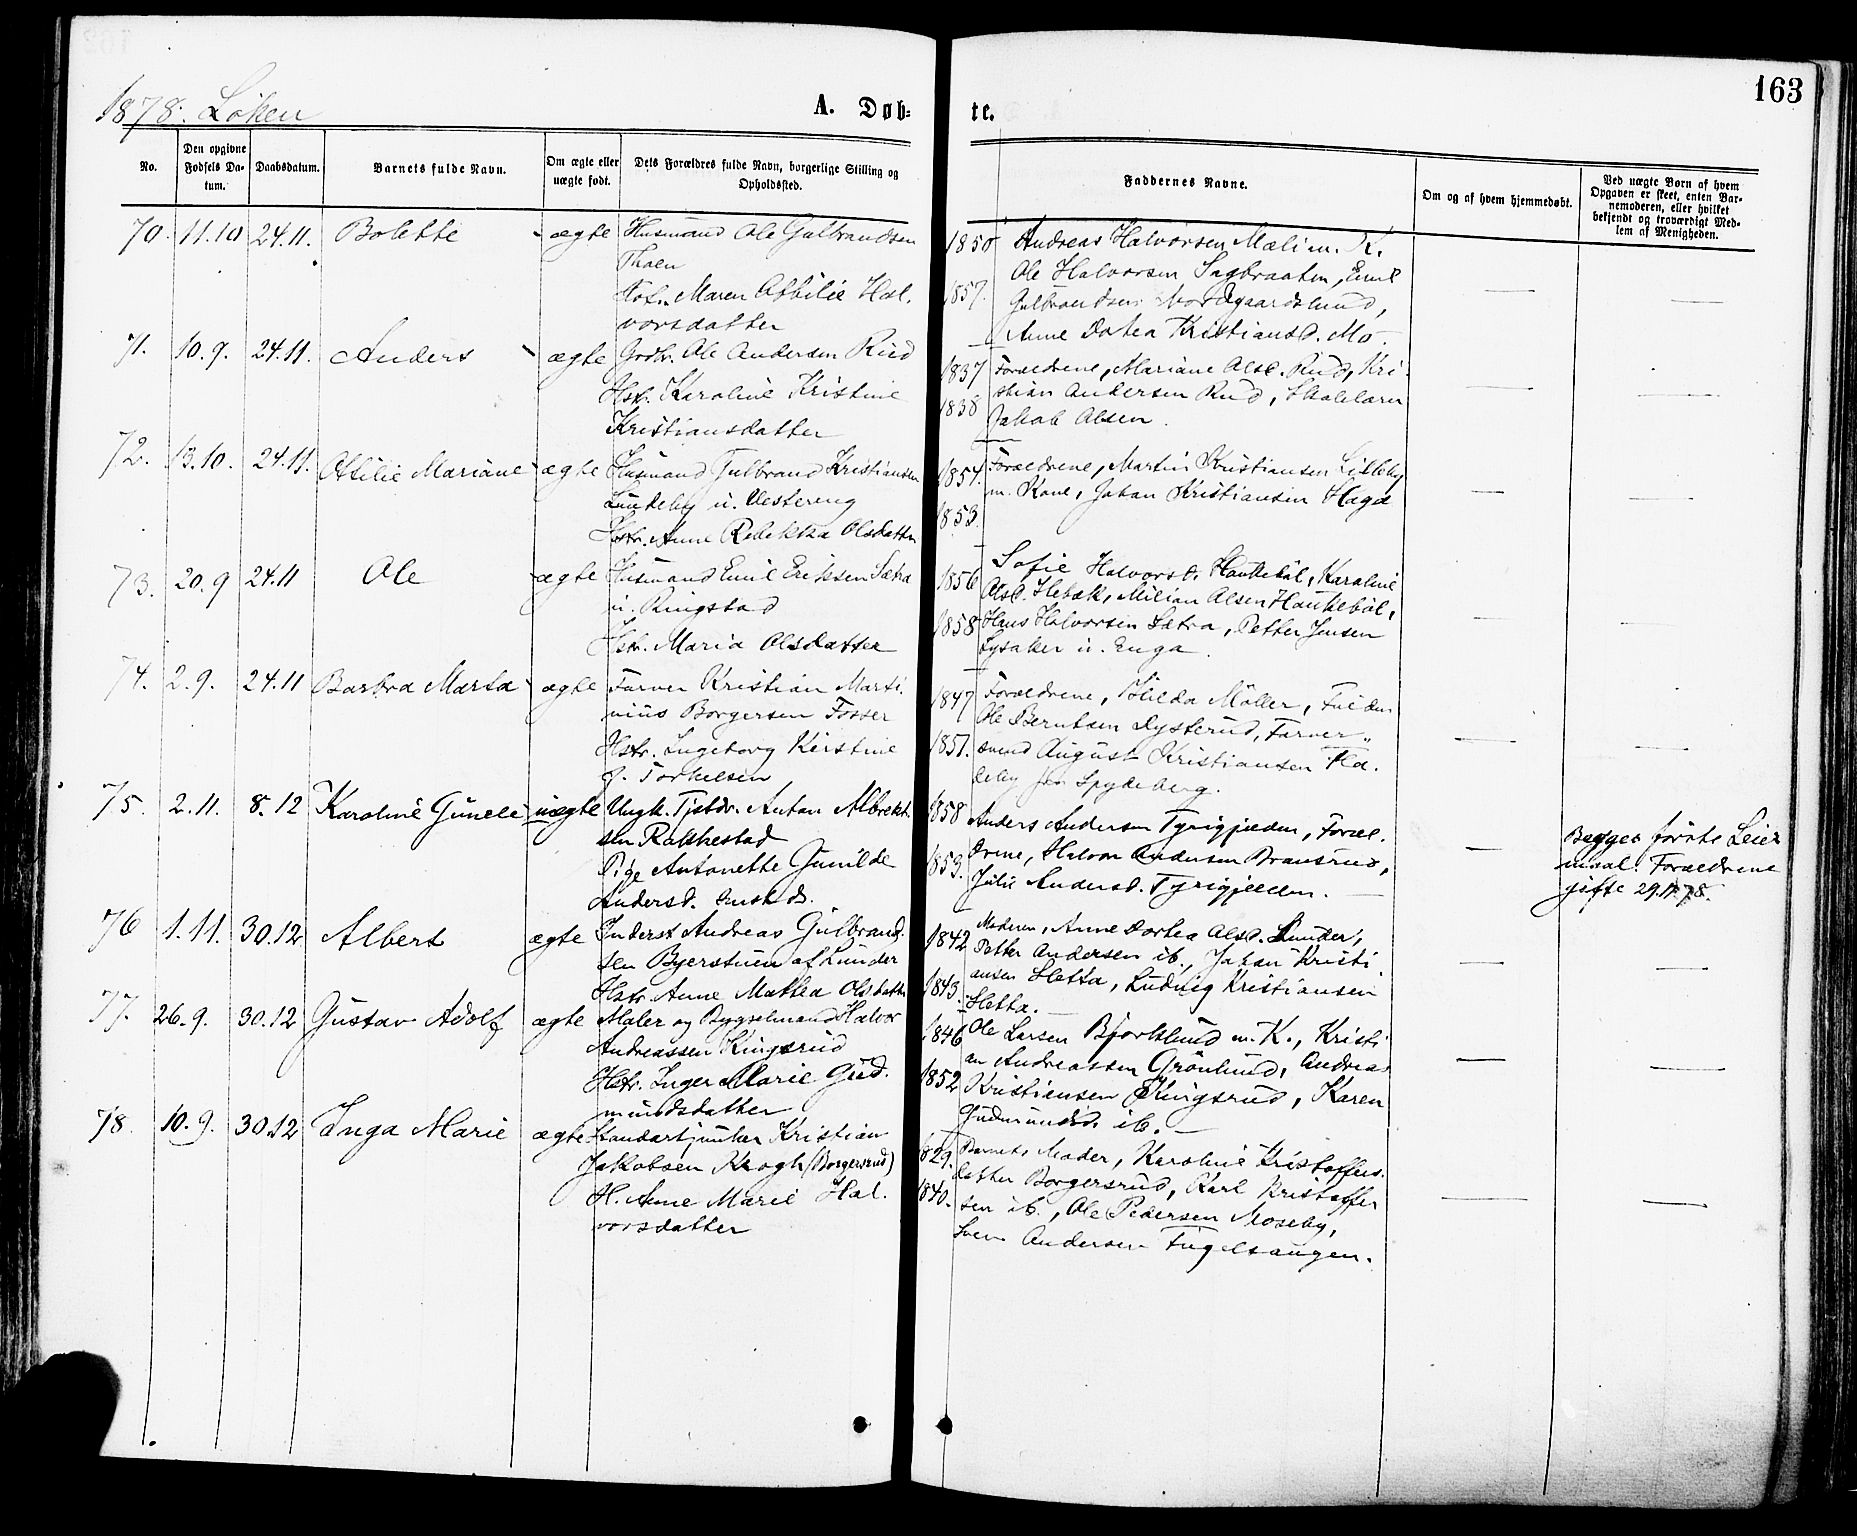 163
1878. Löken
A. Døb-
te.
No.
Den opgivne Fødsels Da-tum.
Daabsdatum.
Barnets fulde Navn.
Om ægte eller uægte født.
Dets Forældres fulde Navn, borgerlige Stilling og Opholdssted.
Faddernes Navne.
Om og af hvem hjemmedøbt.
Ved uægte Børn af hvem Opgaven er skeet, enten Bar-nemoderen, eller hvilket bekjendt og troværdigt Med-lem af Menigheden.
70. 11.10 24.11. Bolette ægte Husmand Ole Gulbrandsen
Thoen
Maren Othilie Hal-
vorsdatter
1850
1857.
Andreas Halvorsen Mæli m. K.
Ole Halvorsen Sagbraaten, Emil
Gulbrandsen Nordgaardslund,
Anne Dortea Kristiansd. Mo.
71. 10.9. 24.11. Anders ægte Gaardbr. Ole Andersen Rud
Hstr. Karoline Kristine
Kristiansdatter
1837
1838
Forældrene, Mariane Olsd. Rud, Kri-
stian Andersen Rud, Skolelærer
Jakob Olsen.
72. 13.10. 24.11. Othilie Mariane ægte Husmand Gulbrand Kristiansen
Lundeby u. Vestereng
Hstr. Anne Rebekka Olsdatter
1854.
1853.
Forældrene, Martin Kristiansen Lilleby
m. Kone, Johan Kristiansen Haga
73. 20.9 24.11 Ole ægte Husmand Emil Eriksen Sætra
u. Ringstad
Hstr. Maria Olsdatter
1856
1858
Sofie Halvorsd. Haukebøl, Karoline
Olsd. Hebæk, Milian Olsen Haukebøl,
Hans Halvorsen Sætra, Petter Jensen
Lysaker u. Enga.
74. 2.9. 24.11 Barbra Marta ægte Farver Kristian Marti-
nius Borgersen Fosser
Hstr. Ingeborg Kirstine
f. Torkelsen
1847
1851.
Forældrene, Hilda Möller,
Ole Berntsen Dysterud, Farver-
svend August Kristiansen Hø-
leby fra Spydeberg.
75. 2.11. 8.12 Karoline Gunele uægte Ungk. Tjstdr. Anton Albrekt-
sen Rakkestad
Pige Antonette Gunilde
Andersd.
1858
1853.
Anders Andersen Tyrigjeden, Foræl-
drene, Halvor Andersen Bransrud,
Julie Andersd. Tyrigjeden.
Begges første Leier
maal. Forældrene
gifte 29.11.78.
76 1.11. 30.12 Albert ægte Inderst Andreas Gulbrand-
sen Bjerstuen af Lunder
Hstr. Anne Mathea Olsdatter
1842
1843.
Moderen, Anne Dortea Olsd. Lunder,
Petter Andersen ib., Johan Kristi
ansen Sletta, Ludvig Kristiansen
Sletta.
77. 26.9. 30.12 Gustav Adolf ægte Maler og Bygselmand Halvor
Andreassen Kingsrud
Hstr. Inger Marie Gud-
mundsdatter
1846
1852
Ole Larsen Bjørklund m. K., Kristi
an Andreassen Grönlund, Andreas
Kristiensen Kingsrud, Karen
Gudmundsd. ib.
78. 10.9. 30.12 Inga Marie ægte Standartjunker Kristian
Jakobsen Krogh (Borgersrud)
H. Anne Marie Hal-
vorsdatter
1829.
1840.
Barnets Moder, Karoline Kristoffers-
datter Borgersrud, Karl Kristoffer
sen ib., Ole Pedersen Moseby,
Sven Andersen Fugelsangen.